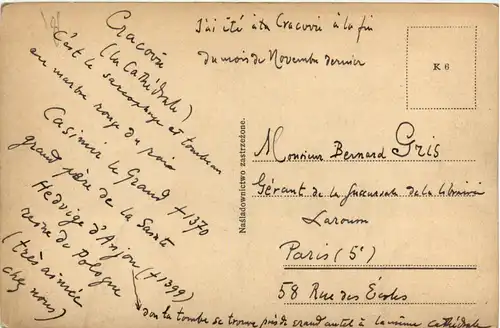 Cracovie
(la Cathédrale)
C'est le sarcophage et tombeau
en marbre rouge du roi
Casimir le Grand †1370
grand père de la Sainte
Hedvige d'Anjou (†1399)
reine de Pologne
(très aimée
chez nous)
→ dont la tombe se trouve près de grand autel à la même cathédrale
J'ai été à Cracovie à la fin
du mois de Novembre dernier
K 6
Naśladownictwo zastrzeżone.
Monsieur Bernard Gris
Gérant de la Succursale de la librairie
Larousse
Paris (5e)
58 Rue des Écoles